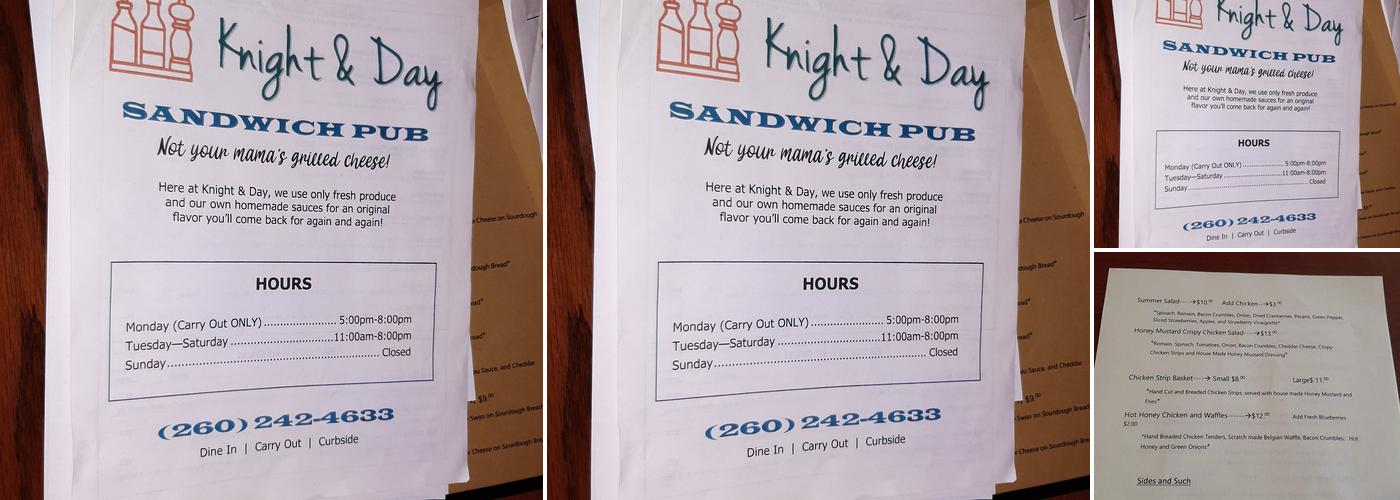 Knight & Day
SANDWICH PUB
Not your mama's grilled cheese!
Here at Knight & Day, we use only fresh produce
and our own homemade sauces for an original
flavor you'll come back for again and again!
HOURS
Monday (Carry Out ONLY) ........................ 5:00pm-8:00pm
Tuesday—Saturday ..................................11:00am-8:00pm
Sunday................................................................ Closed
(260) 242-4633
Dine In | Carry Out | Curbside
Cheese on Sourdough
dough Bread*
Sauce, and Cheddar
$9.00
Swiss on Sourdough
Cheese on Sourdough Bread
Knight & Day
SANDWICH PUB
Not your mama's grilled cheese!
Here at Knight & Day, we use only fresh produce
and our own homemade sauces for an original
flavor you'll come back for again and again!
HOURS
Monday (Carry Out ONLY) ........................ 5:00pm-8:00pm
Tuesday—Saturday ..................................11:00am-8:00pm
Sunday................................................................ Closed
(260) 242-4633
Dine In | Carry Out | Curbside
Cheese on Sourdough
dough Bread*
Sauce, and Cheddar
$9.00
Swiss on Sourdough Bread
Cheese on Sourdough Bread
Knight & Day
SANDWICH PUB
Not your mama's grilled cheese!
Here at Knight & Day, we use only fresh produce
and our own homemade sauces for an original
flavor you'll come back for again and again!
HOURS
Monday (Carry Out ONLY) ................ 5:00pm-8:00pm
Tuesday—Saturday ........................11:00am-8:00pm
Sunday................................................ Closed
(260) 242-4633
Dine In | Carry Out | Curbside
Summer Salad----→$10.00 Add Chicken--→$3.00
*Spinach, Romain, Bacon Crumbles, Onion, Dried Cranberries, Pecans, Green Pepper,
Sliced Strawberries, Apples, and Strawberry Vinaigrette*
Honey Mustard Crispy Chicken Salad----→$13.00
*Romain, Spinach, Tomatoes, Onion, Bacon Crumbles, Cheddar Cheese, Crispy
Chicken Strips and House Made Honey Mustard Dressing*
Chicken Strip Basket----→ Small $8.00 Large$ 11.00
*Hand Cut and Breaded Chicken Strips, served with house made Honey Mustard and
Fries*
Hot Honey Chicken and Waffles------→$12.00 Add Fresh Blueberries
$2.00
*Hand Breaded Chicken Tenders, Scratch made Belgian Waffle, Bacon Crumbles, Hot
Honey and Green Onions*
Sides and Such